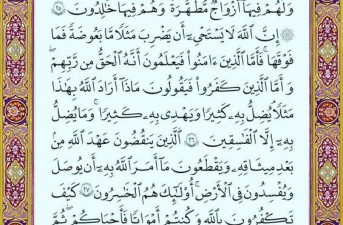 وَلَهُمْ فِيهَا أَزْوَاجٌ مُّطَهَّرَةٌ وَهُمْ فِيهَا خَالِدُونَ ٢٥
إِنَّ ٱللَّهَ لَا يَسْتَحْىِۦٓ أَن يَضْرِبَ مَثَلًا مَّا بَعُوضَةً فَمَا
فَوْقَهَا فَأَمَّا ٱلَّذِينَ ءَامَنُوا۟ فَيَعْلَمُونَ أَنَّهُ ٱلْحَقُّ مِن رَّبِّهِمْ
وَأَمَّا ٱلَّذِينَ كَفَرُوا۟ فَيَقُولُونَ مَاذَآ أَرَادَ ٱللَّهُ بِهَٰذَا
مَثَلًا يُضِلُّ بِهِۦ كَثِيرًا وَيَهْدِى بِهِۦ كَثِيرًا وَمَا يُضِلُّ
بِهِۦٓ إِلَّا ٱلْفَٰسِقِينَ ٢٦ ٱلَّذِينَ يَنقُضُونَ عَهْدَ ٱللَّهِ مِنۢ
بَعْدِ مِيثَٰقِهِۦ وَيَقْطَعُونَ مَآ أَمَرَ ٱللَّهُ بِهِۦٓ أَن يُوصَلَ
وَيُفْسِدُونَ فِى ٱلْأَرْضِ أُو۟لَٰٓئِكَ هُمُ ٱلْخَٰسِرُونَ ٢٧ كَيْفَ
تَكْفُرُونَ بِٱللَّهِ وَكُنتُمْ أَمْوَٰتًا فَأَحْيَٰكُمْ ثُمَّ